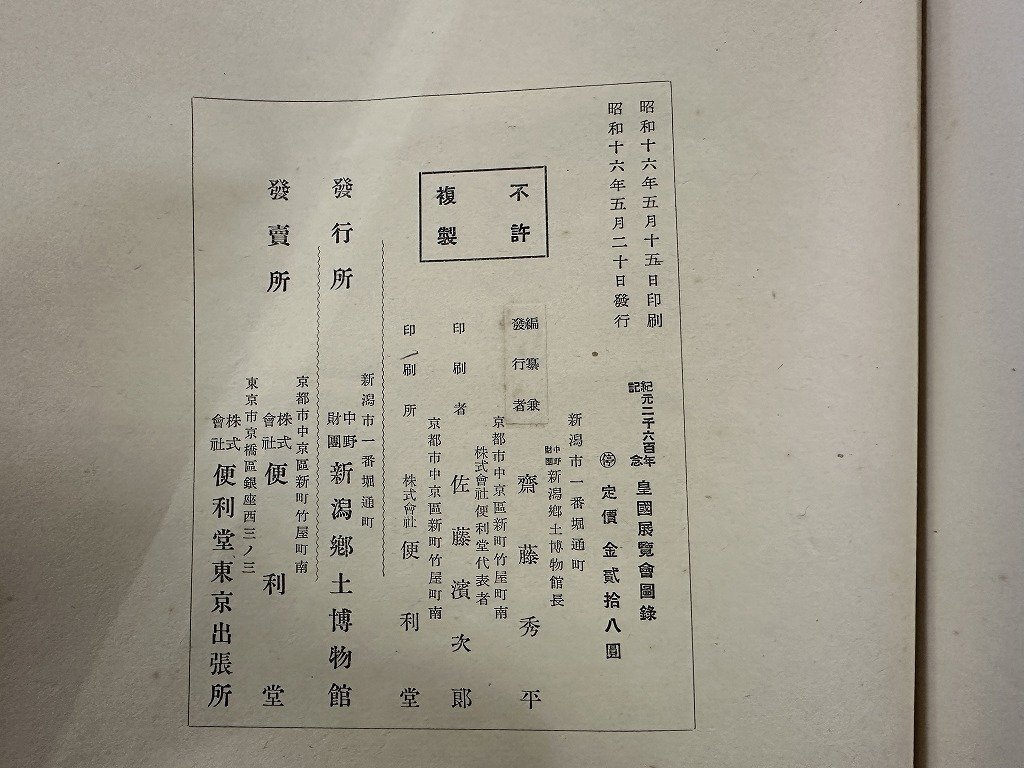 昭和十六年五月十五日印刷
昭和十六年五月二十日發行
紀元二千六百年記念 皇國展覽會圖錄
㊡ 定價 金貳拾八圓
不許複製
新潟市一番堀通町
中野財團 新潟鄉土博物館長
編纂兼發行者 齋藤秀平
京都市中京區新町竹屋町南
株式會社便利堂代表者
印刷者 佐藤濱次郎
京都市中京區新町竹屋町南
印刷所 株式會社 便利堂
新潟市一番堀通町
發行所 中野財團 新潟鄉土博物館
京都市中京區新町竹屋町南
發賣所 株式會社 便利堂
東京市京橋區銀座西三ノ三
株式會社 便利堂東京出張所